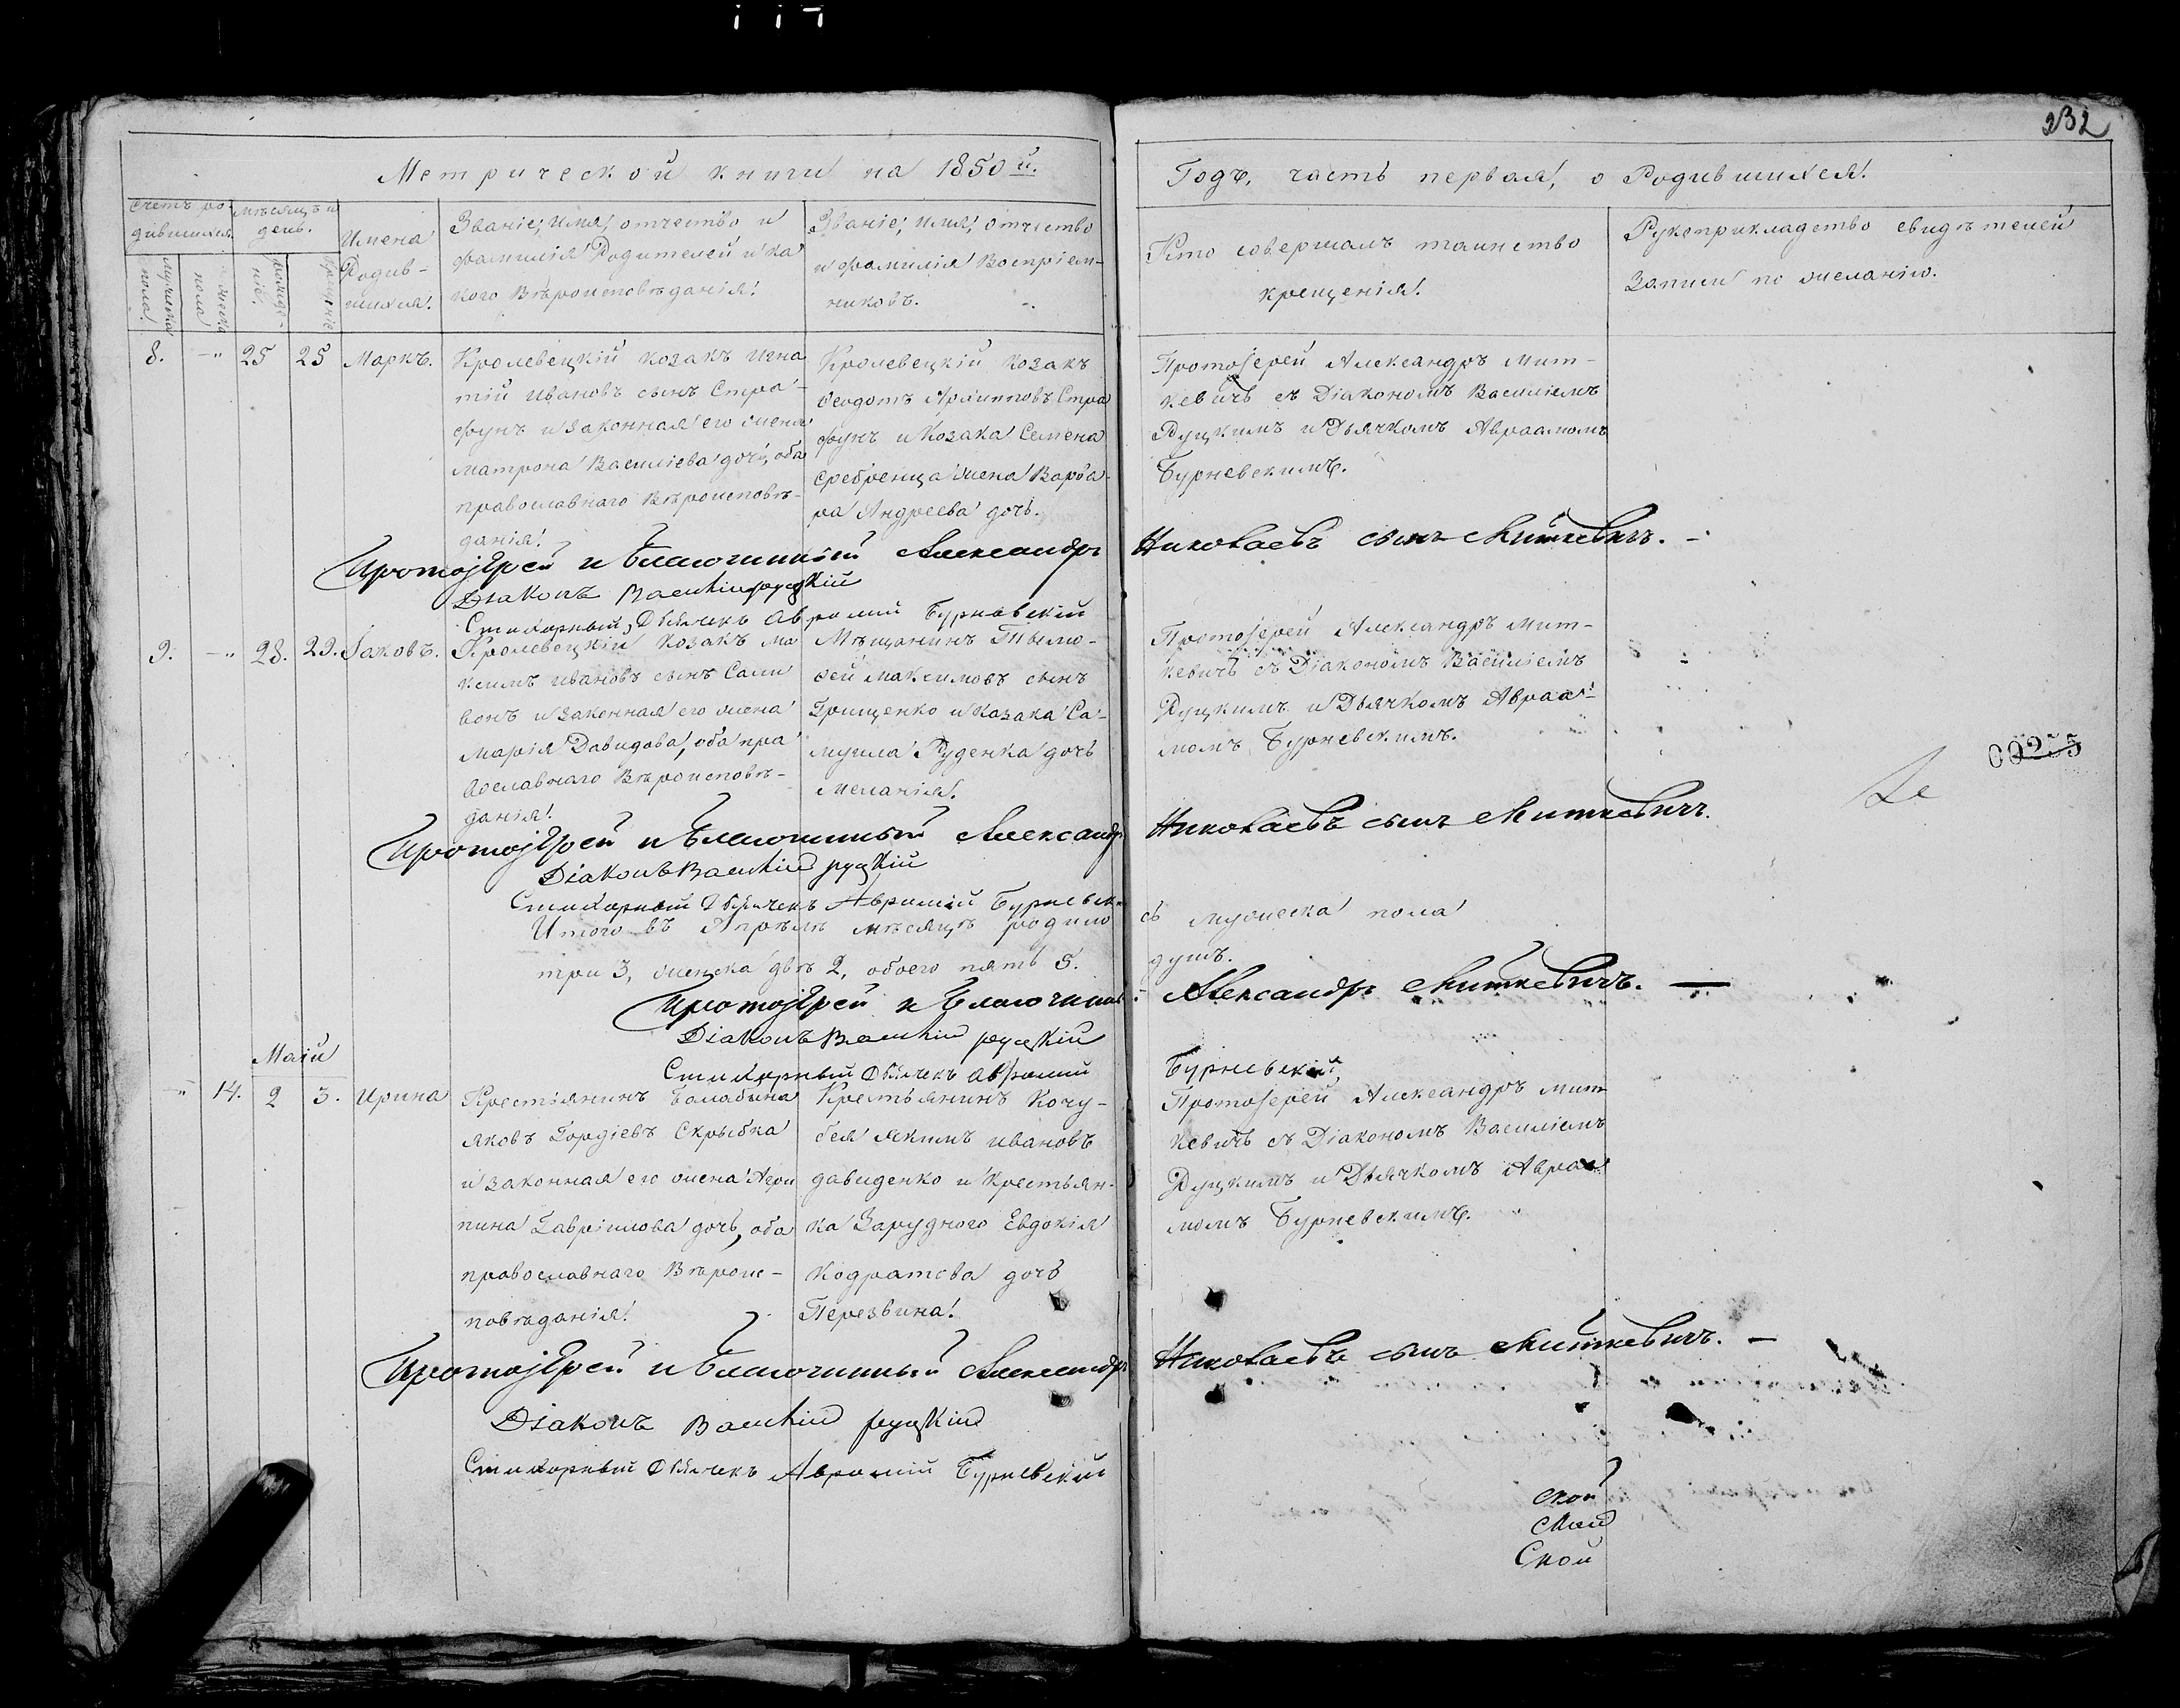 232
Метрической книги на 1850й.
Годъ, часть первая, о Родившихся.
Счетъ ро-
дившихся.
мѣсяцъ и
день.
Имена
Родив-
шихся.
Званіе, имя, отчество и
фамилія Родителей и ка
кого Вѣроисповѣданія.
Званіе, имя, отчество
и фамилія Воспріем-
никовъ.
Кто совершалъ таинство
крещенія.
Рукоприкладство свидѣтелей
записи по желанію.
мужеска
пола.
женска
пола
рожде-
ніе.
крещеніе
8. -" 25 25 Маркъ.
Кролевецкій козакъ Игна
тій Ивановъ сынъ Стра-
фунъ и законная его жена
Матрона Василіева дочь, оба
православнаго Вѣроисповѣ-
данія.
Кролевецкій козакъ
Феодотъ Архипповъ Стра
фунъ и Козака Семена
Сребренца жена Варва-
ра Андреева дочь.
Протоіерей Александръ Мит-
кевичь съ Діакономъ Василіемъ
Руцкимъ и Дьячкомъ Авраамомъ
Бурневскимъ.
Протоіерей и Благочинный Александръ Николаевъ сынъ Миткевичъ. -
Діаконъ Василій руцкій
Стихарный Дьячекъ Аврамій Бурневскій
9. -" 28. 29. Іаковъ.
Кролевецкій Козакъ Ма
ксимъ Ивановъ сынъ Сали
вонъ и законная его жена
Марія Давидова, оба пра
вославнаго Вѣроисповѣ-
данія.
Мѣщанинъ Тимо-
фей Максимовъ сынъ
Грищенко и Казака Са-
муила Руденка дочь
Меланія.
Протоіерей Александръ Мит-
кевичь съ Діакономъ Василіемъ
Руцкимъ и Дьячкомъ Авраа-
момъ Бурневскимъ.
00255
Протоіерей и Благочинный Александръ Николаевъ сынъ Миткевичъ.
Діаконъ Василій руцкій
Стихарный Дьячекъ Аврамій Бурневск
Итого въ Апрѣлѣ мѣсяцѣ родило сь мужеска пола
три 3, женска двѣ 2, обоего пять 5. душъ.
Протоіерей и Благочинный: Александръ Миткевичъ. —
Діаконъ Василій руцкій
Стихарный Дьячекъ Аврамій Бурневскій
Маій
" 14. 2 3. Ирина
Крестьянинъ Балабина
Яковъ Гордіевъ Скрыбка
и законная его жена Агри
пина Гавріилова дочь, оба
православнаго Вѣроис-
повѣданія.
Крестьянинъ Кочу-
бея Якимъ Ивановъ
Давиденко и Крестьян-
ка Зарудного Евдокія
Кодратова дочь
Перезвина.
Протоіерей Александръ Мит
кевичь съ Діакономъ Василіемъ
Руцкимъ и Дьячкомъ Авраа
момъ Бурневскимъ.
Протоіерей и Благочинный Александръ Николаевъ сынъ Миткевичъ. —
Діаконъ Василій руцкій
Стихарный Дьячекъ Аврамій Бурневскій
ской
ской
Ской